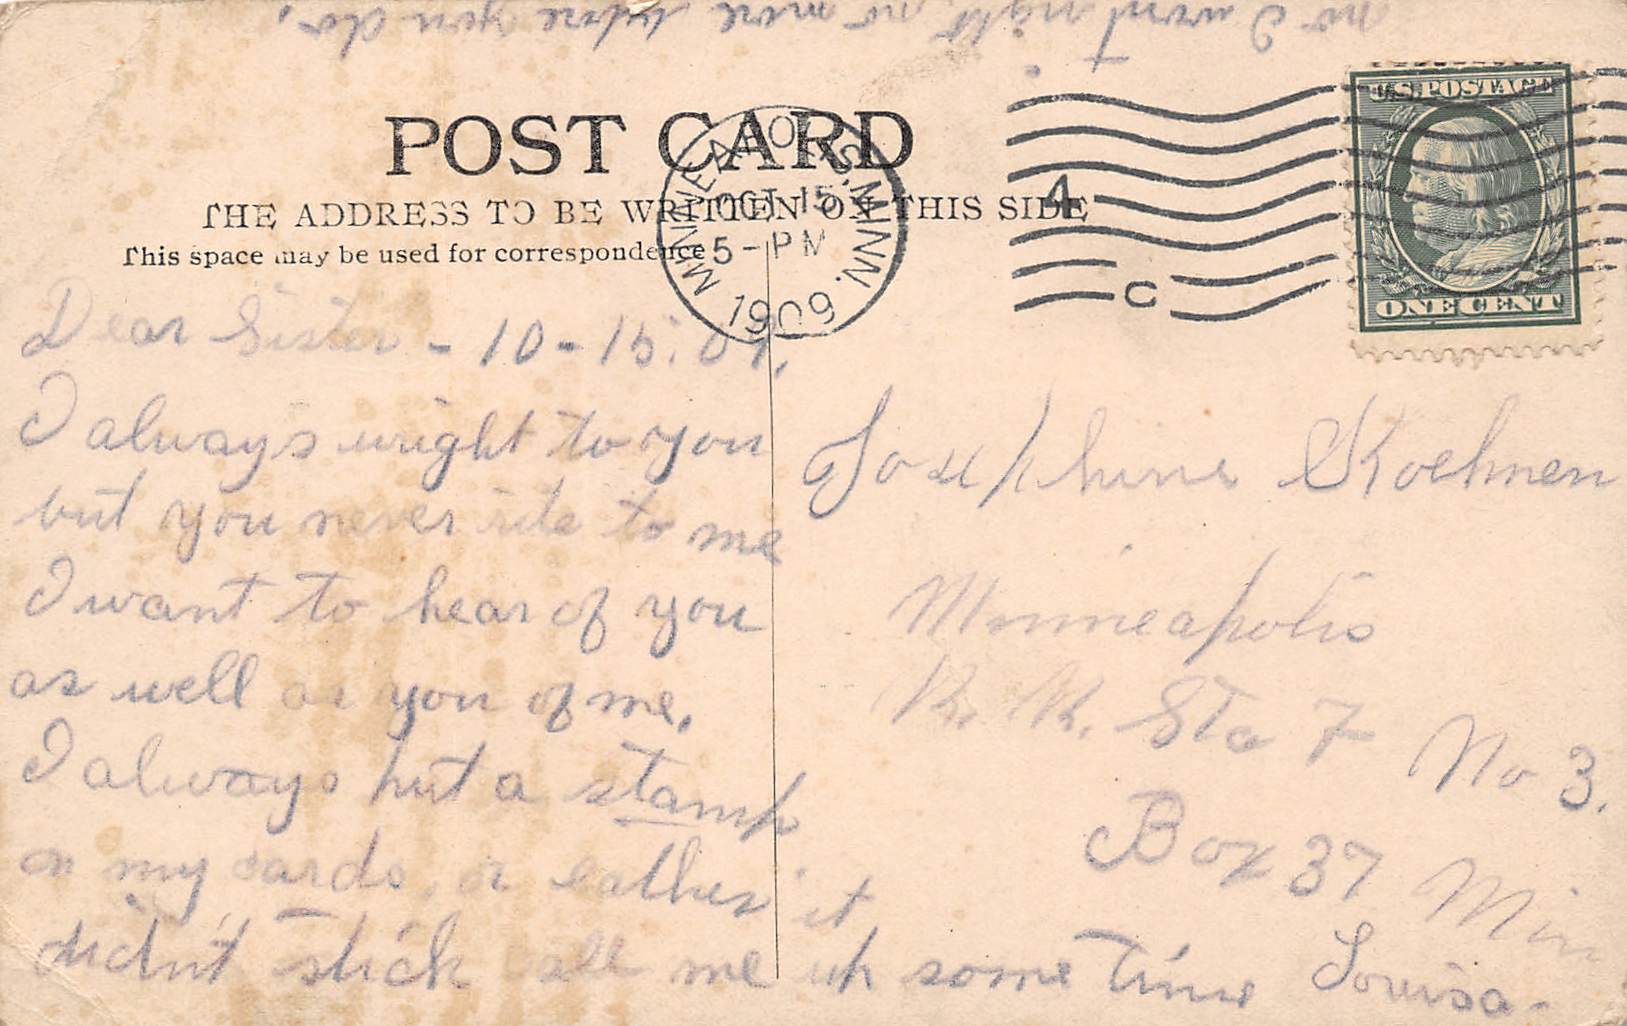 no I wont right no more before you do.
POST CARD
THE ADDRESS TO BE WRITTEN ON THIS SIDE
This space may be used for correspondence
MINNEAPOLIS, MINN.
OCT 15
5-PM
1909
4
C
U.S. POSTAGE
ONE CENT
Dear Sister - 10-15.09.
I always wright to you
but you never rite to me
I want to hear of you
as well as you of me.
I always put a stamp
on my cards, or eather it
didn't stick all me up some time Louisa-
Josephine Koehnen
Minneapolis
R. R. Sta 7 No 3.
Box 37 Min